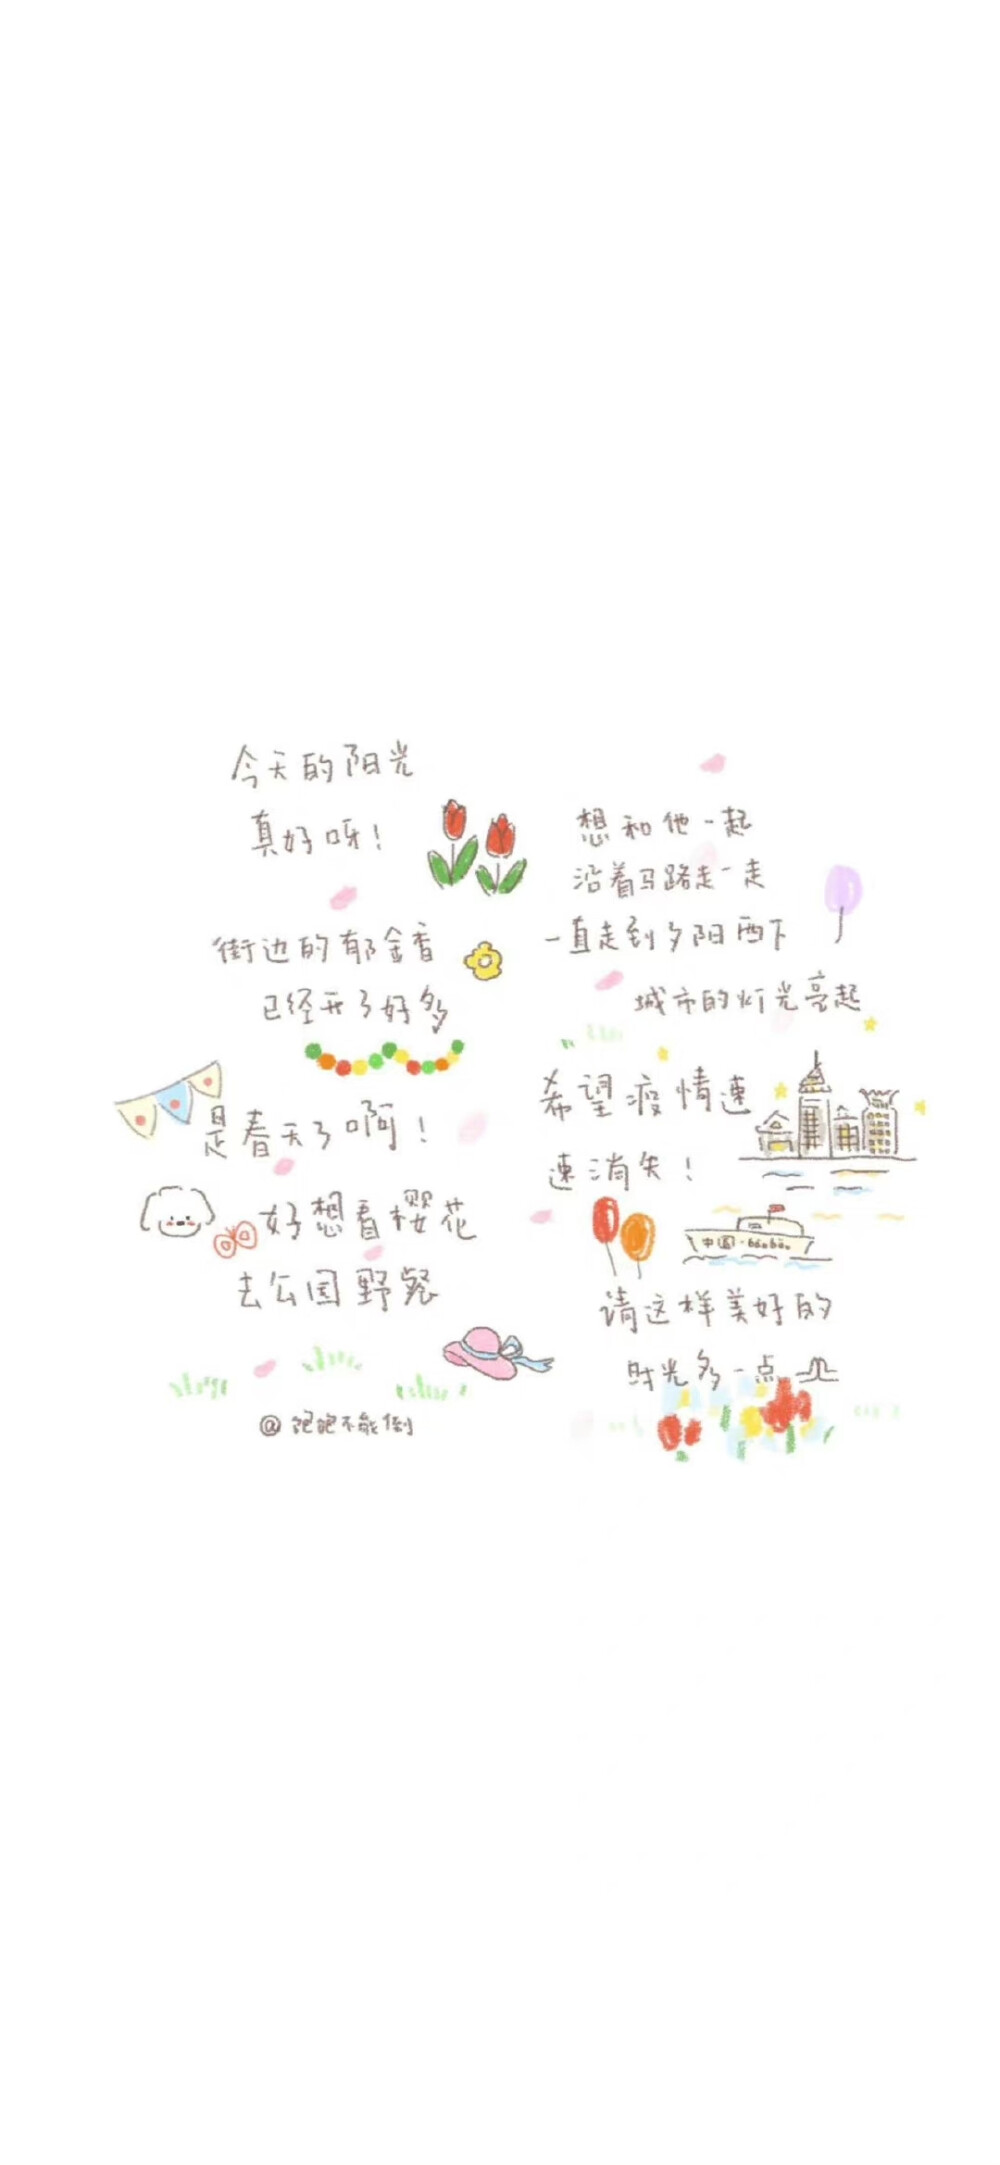 今天的阳光
真好呀！
街边的郁金香
已经开了好多
是春天了啊！
好想看樱花
去公园野餐
想和他一起
沿着马路走一走
一直走到夕阳西下
城市的灯光亮起
希望疫情速
速消失！
中国·
请这样美好的
时光多一点
@跑跑不能倒